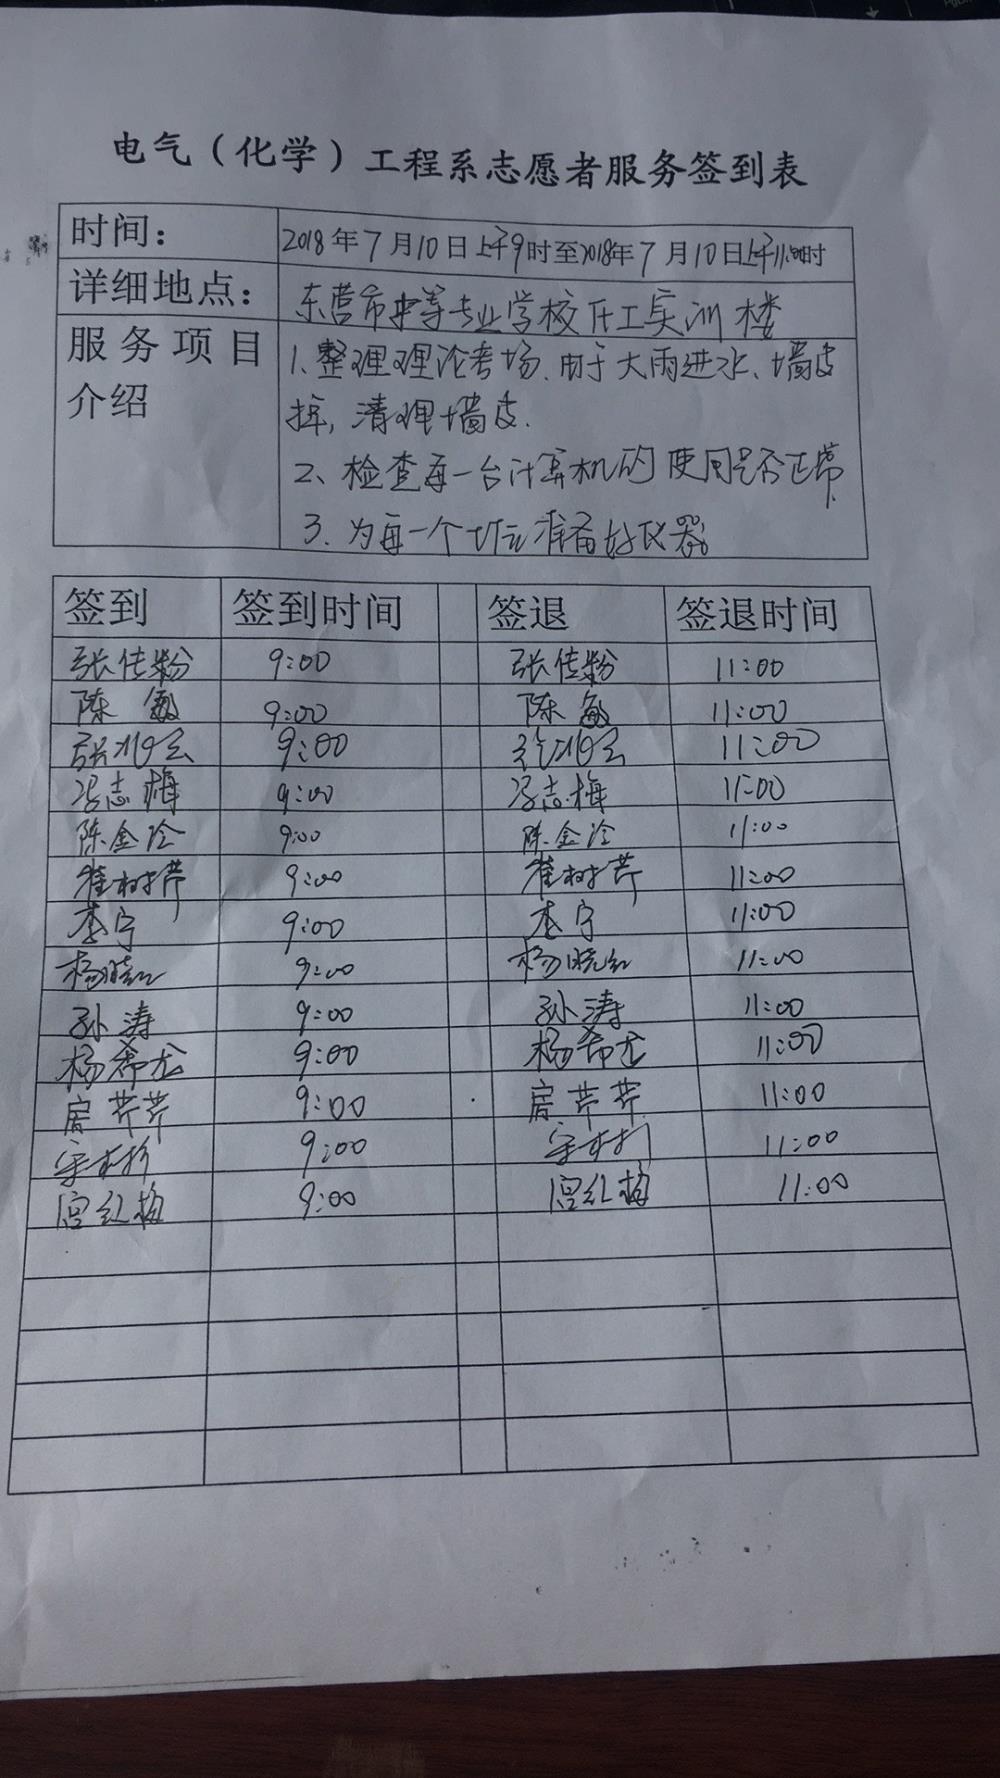 电气（化学）工程系志愿者服务签到表
时间： 2018年7月10日上午9时至2018年7月10日上午11:00时
详细地点： 东营市中等专业学校 实训楼
服务项目 1、整理理论考场、由于大雨进水、墙皮
介绍 掉,清理墙皮.
2、检查每一台计算机的使用是否正常
3、为每一个 准备好仪器
签到 签到时间 签退 签退时间
张佳粉 9:00 张佳粉 11:00
陈敏 9:00 陈敏 11:00
9:00 11:00
冯志梅 9:00 冯志梅 11:00
陈金泠 9:00 陈金泠 11:00
崔树芹 9:00 崔树芹 11:00
李宁 9:00 李宁 11:00
杨晓红 9:00 杨晓红 11:00
孙涛 9:00 孙涛 11:00
杨希龙 9:00 杨希龙 11:00
房芹芹 9:00 房芹芹 11:00
9:00 11:00
宫红梅 9:00 宫红梅 11:00